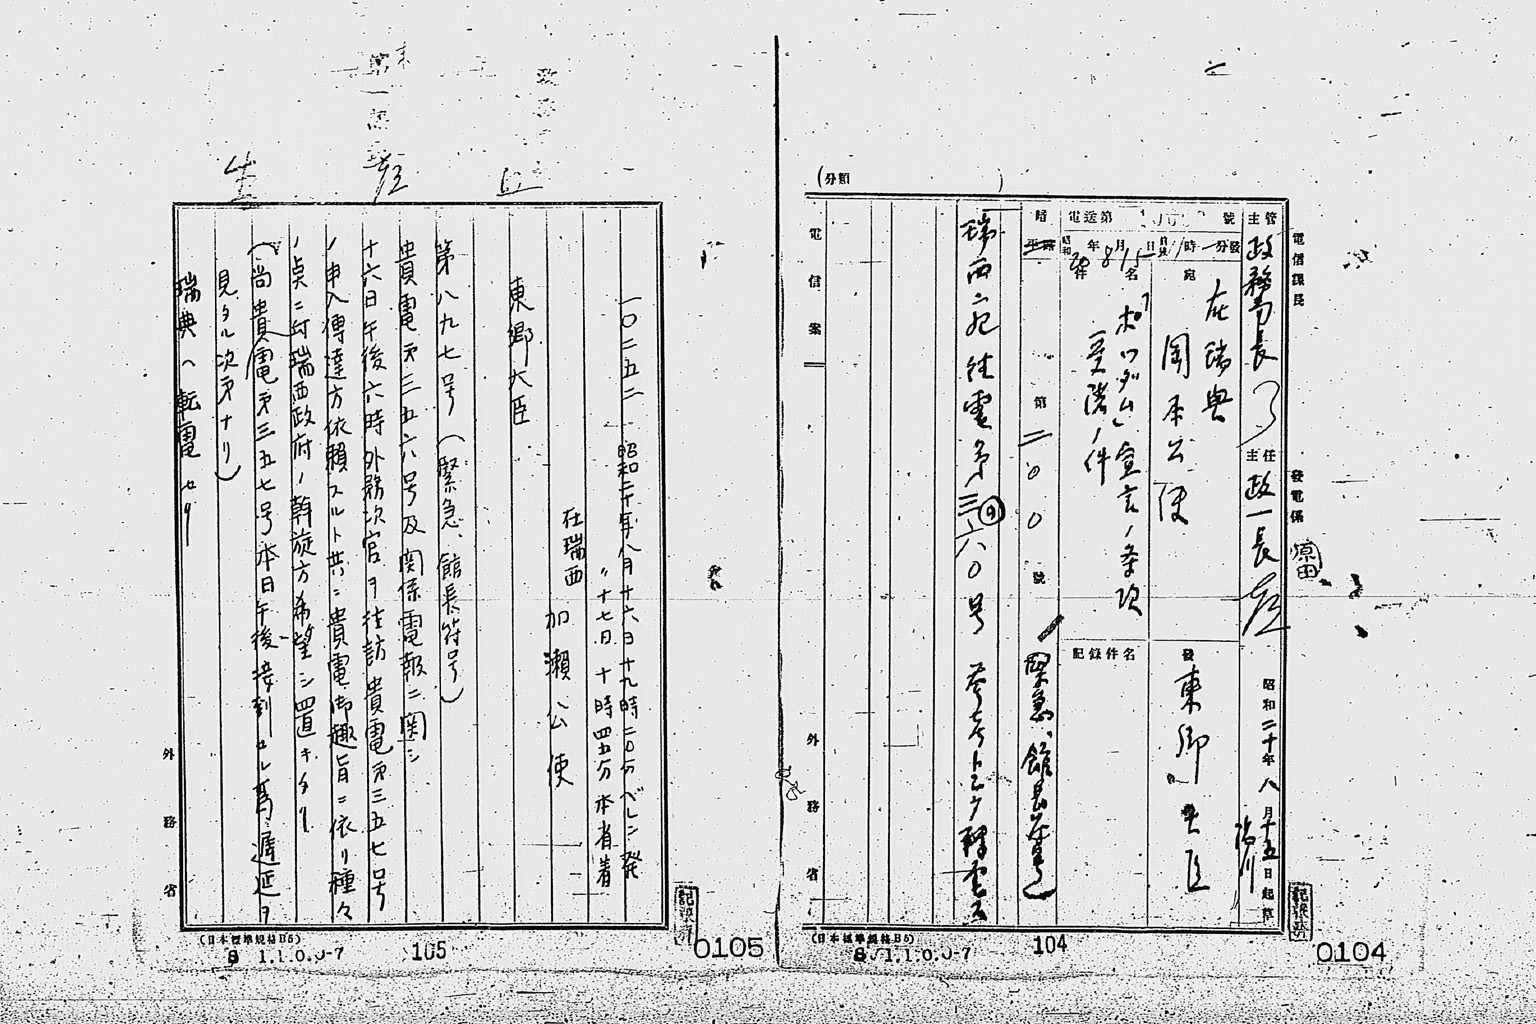 (分類 )
電信課長
發電係
原田
主管
政務局長
主任
政一長
昭和二十年八月十五日起草
電送第 號
昭和20年8月15日 時 分發
宛
在瑞典
岡本公使
發
東郷大臣
件名
「ポツダム」宣言ノ条項
受諾ノ件
記錄件名
暗
第二〇〇號
緊急、館長符号
瑞西宛往電第三六〇号
電信案
外務省
(日本標準規格B5)
S 1.1.0.0-7
104
0104
一〇二五二
昭和二十年八月十六日十九時二〇分ベルン発
〃十七日十時四五分本省着
在瑞西
加瀬公使
東郷大臣
第八九七号(緊急、館長符号)
貴電第三五六号及関係電報ニ関シ
十六日午後六時外務次官ヲ往訪貴電第三五七号
ノ申入傳達方依頼スルト共ニ貴電御趣旨ニ依リ種々
ノ点ニ付瑞西政府ノ斡旋方希望シ置キタリ
(尚貴電第三五七号本日午後接到セル為遅延ヲ
見タル次第ナリ)
瑞典ヘ転電セリ
外務省
(日本標準規格B5)
S 1.1.0.0-7
105
0105